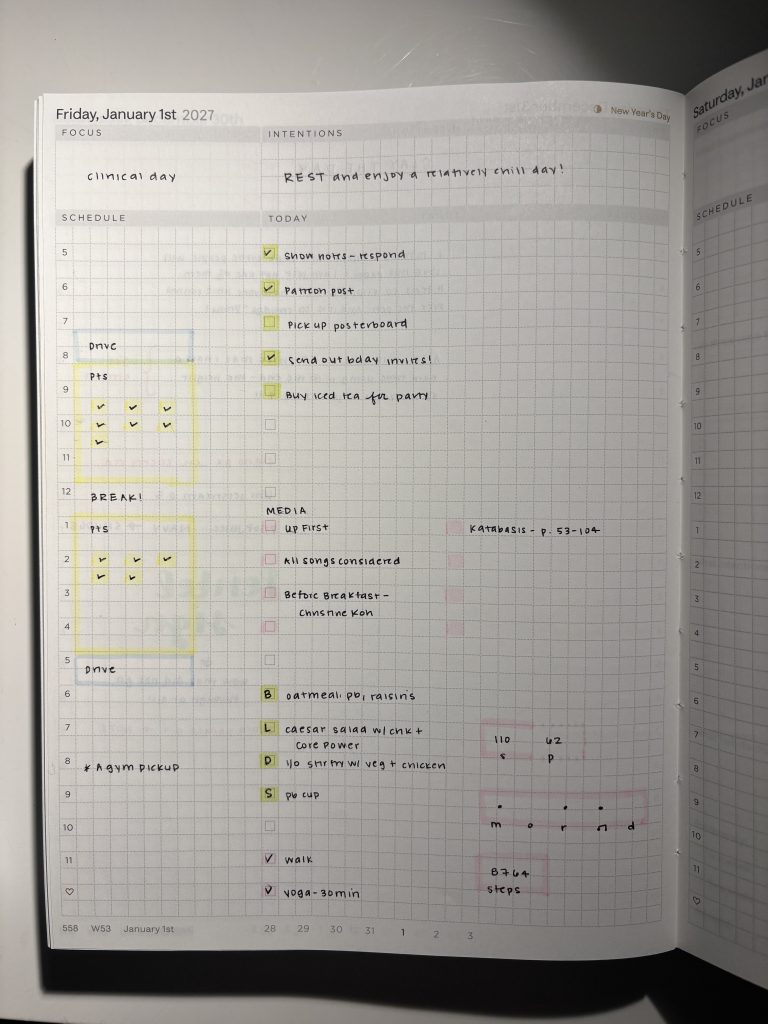 Friday, January 1st 2027
New Year's Day
FOCUS
INTENTIONS
clinical day
REST and enjoy a relatively chill day!
SCHEDULE
TODAY
5
show notes - respond
6
Patreon post
7
Pick up posterboard
Drive
8
Send out bday invites!
Pts
9
Buy iced tea for party
10
11
12
BREAK!
MEDIA
1
Pts
Up First
Katabasis - p. 53-104
2
All songs considered
3
Before Breakfast -
Christine Koh
4
5
Drive
6
B oatmeal, pb, raisins
7
L caesar salad w/ chk +
Core Power
110 62
s p
8
* A gym pickup
D l/o stir fry w/ veg + chicken
9
S pb cup
10
m o r n d
11
walk
8764
steps
yoga - 30 min
558 W53 January 1st
28 29 30 31 1 2 3
Saturday, Jan
FOCUS
SCHEDULE
5
6
7
8
9
10
11
12
1
2
3
4
5
6
7
8
9
10
11